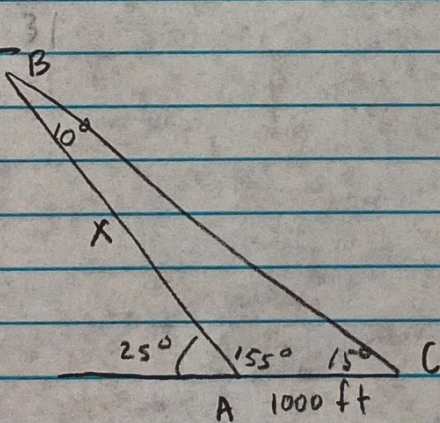 31
B
10°
X
25° 155° 15° C
A 1000 ft